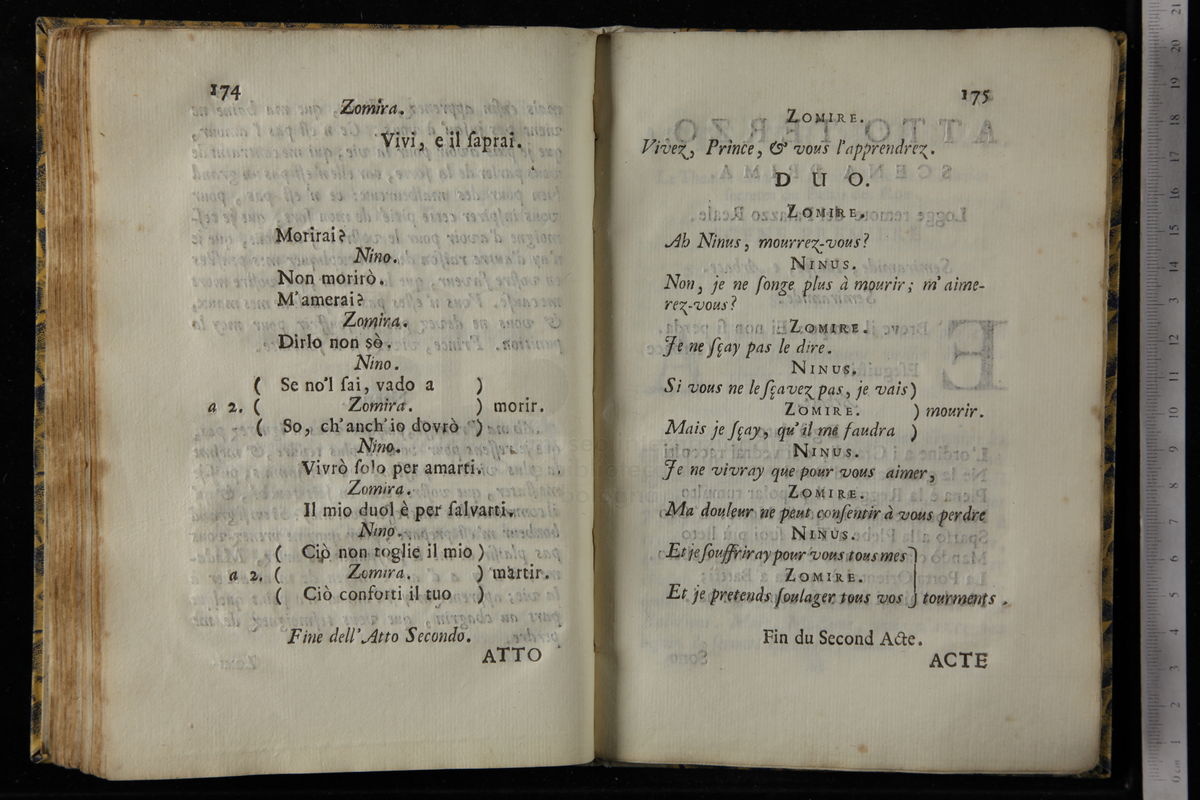 174
Zomira.
Vivi, e il ſaprai.
Morirai?
Nino.
Non morirò.
M'amerai?
Zomira.
Dirlo non sò.
Nino.
( Se no'l ſai, vado a )
a 2. ( Zomira. ) morir.
( So, ch'anch'io dovrò )
Nino.
Vivrò ſolo per amarti.
Zomira.
Il mio duol è per ſalvarti.
Nino.
( Ciò non toglie il mio )
a 2. ( Zomira. ) martir.
( Ciò conforti il tuo )
Fine dell'Atto Secondo.
ATTO
175
ZOMIRE.
Vivez, Prince, & vous l'apprendrez.
DUO.
ZOMIRE.
Ah Ninus, mourrez-vous?
NINUS.
Non, je ne ſonge plus à mourir; m'aime-
rez-vous?
ZOMIRE.
Je ne ſçay pas le dire.
NINUS.
Si vous ne le ſçavez pas, je vais )
ZOMIRE. ) mourir.
Mais je ſçay, qu'il me faudra )
NINUS.
Je ne vivray que pour vous aimer,
ZOMIRE.
Ma douleur ne peut conſentir à vous perdre
NINUS.
Et je ſouffriray pour vous tous mes }
ZOMIRE.
Et je pretends ſoulager tous vos } tourments.
Fin du Second Acte.
ACTE